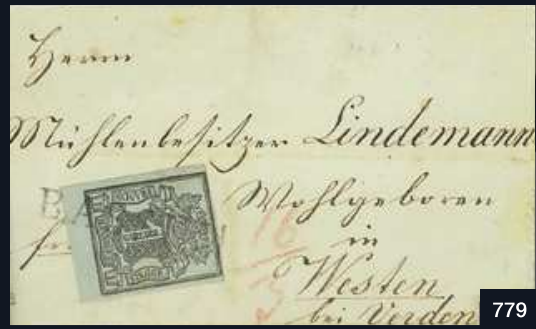 Herrn
Mühlenbesitzer Lindemann
Wohlgeboren
in
Westen
bei Verden
BA
16
779